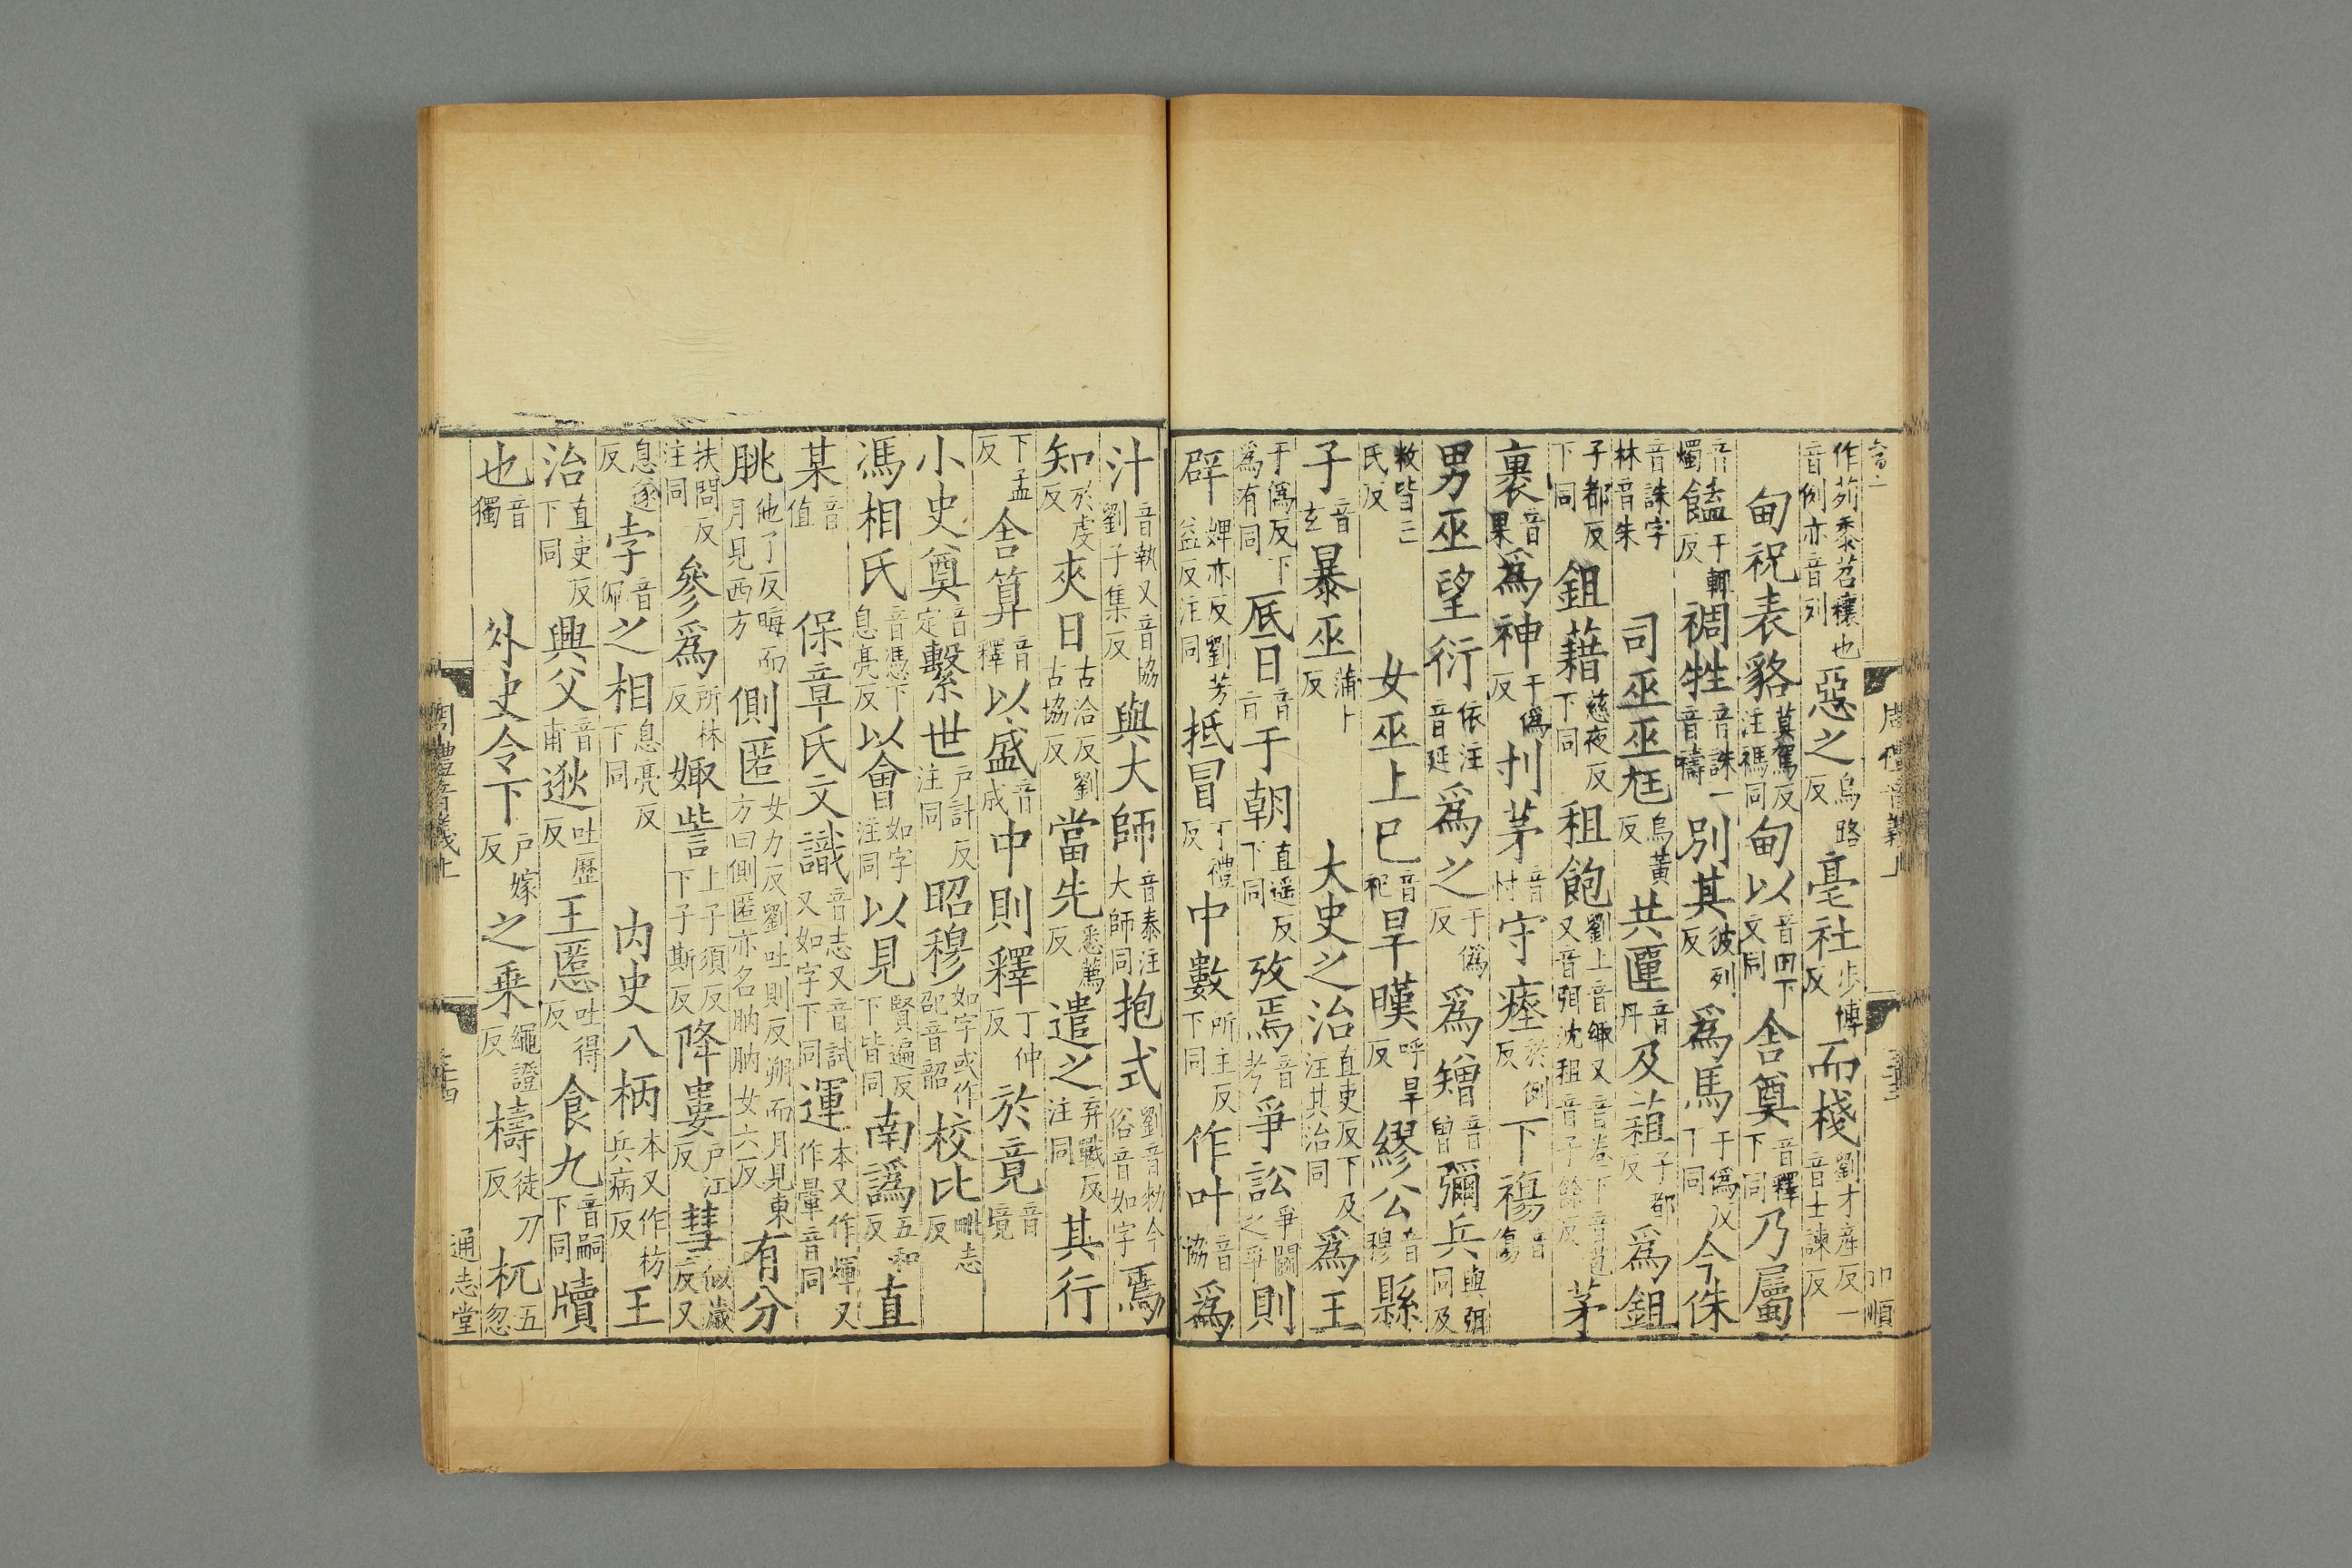 作茢黍苕穰也音例亦音列惡之烏路反亳社步博反而棧劉才產反一音士諫反
甸祝表貉莫駕反注禡同甸以音田下文同舍奠音釋下同乃屬
音燭饁于輒反禂牲音誅一音禱別其彼列反爲馬于僞反下同今侏
音誅字林音朱司巫巫尪烏黃反共匰音丹及蒩子都反爲鉏
子都反下同鉏藉慈夜反下同租飽劉上音鉏又音卷下音苞又音弭沈租音子餘反茅
裹音果爲神于僞反刌茅音忖守瘞於例反下禓音傷
男巫望衍依注音延爲之于僞反爲矰音曾彌兵與弭同及
敉皆亡氏反女巫上巳音祀旱暵呼旱反繆公音穆縣
子音玄暴巫蒲卜反大史之治直吏反下及注其治同爲王
于僞反下爲有同厎日音旨于朝直遥反下同攷焉音考爭訟爭鬭之爭則
辟婢亦反劉芳益反注同抵冒丁禮反中數所主反下同作叶音協爲
汁音執又音協劉子集反與大師音泰注大師同抱式劉音勑今俗音如字焉
知於虔反夾日古洽反劉古協反當先悉薦反遣之弃戰反注同其行
下孟反舍算音釋以盛音成中則釋丁仲反於竟音境
小史奠音定繫世戶計反注同昭穆如字或作𥙷音韶校比毗志反
馮相氏音憑下息亮反以會如字注同以見賢遍反下皆同南譌五和反直
某音值保章氏文識音志又音試又如字下同運本又作煇又作暈音同
朓他了反晦而月見西方側匿女力反劉吐則反朔而月見東方曰側匿亦名朒朒女六反有分
扶問反注同參爲所林反娵訾上子須反下子斯反降婁戶江反彗似歲反又
息遂反孛音佩之相息亮反下同内史八柄本又作枋兵病反王
治直吏反下同興父音甫逖吐歷反王慝吐得反食九音嗣下同牘
音獨也外史令下戶嫁反之乘繩證反檮徒刀反杌五忽
通志堂